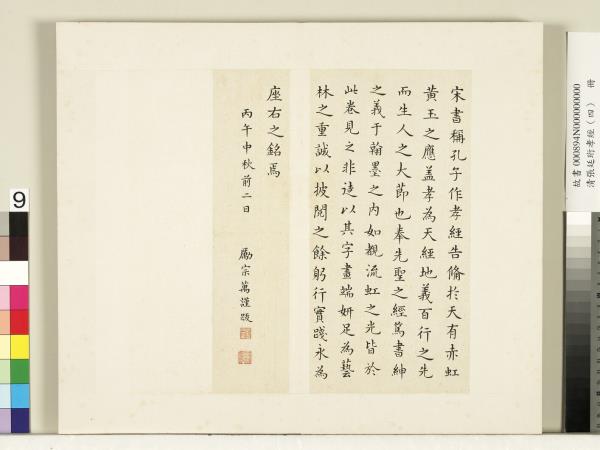 宋書稱孔子作孝經告備於天有赤虹
黃玉之應盖孝為天經地義百行之先
而生人之大節也奉先聖之經篤書紳
之義于翰墨之內如親流虹之光皆於
此卷見之非徒以其字畫端妍足為藝
林之重誠以披閱之餘躬行實踐永為
座右之銘焉
丙午中秋前二日
勵宗萬謹跋
故書 000894N000000000 冊
清張廷珩孝經（四）
9